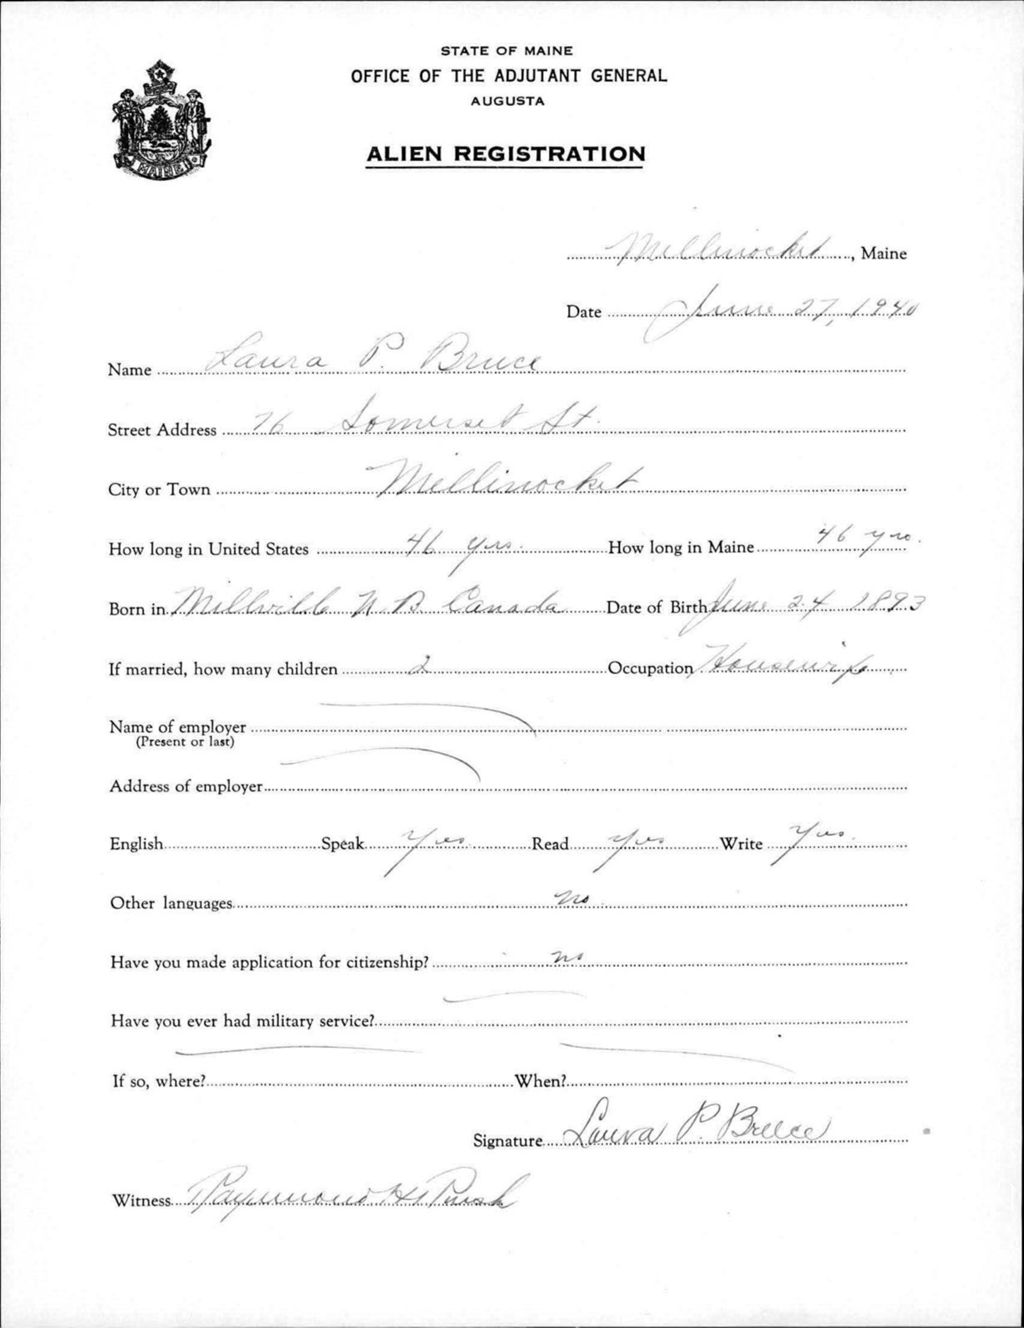 STATE OF MAINE
OFFICE OF THE ADJUTANT GENERAL
AUGUSTA
ALIEN REGISTRATION
MAINE
Millinocket, Maine
Date June 27, 1940
Name Laura P. Bruce
Street Address 76 Somerset St.
City or Town Millinocket
How long in United States 46 yrs. How long in Maine 46 yrs.
Born in Millville N. B. Canada Date of Birth June 24 1893
If married, how many children 2 Occupation Housewife
Name of employer
(Present or last)
Address of employer
English Speak Yes Read Yes Write Yes
Other languages no
Have you made application for citizenship? no
Have you ever had military service?
If so, where? When?
Signature Laura P. Bruce
Witness Raymond H.